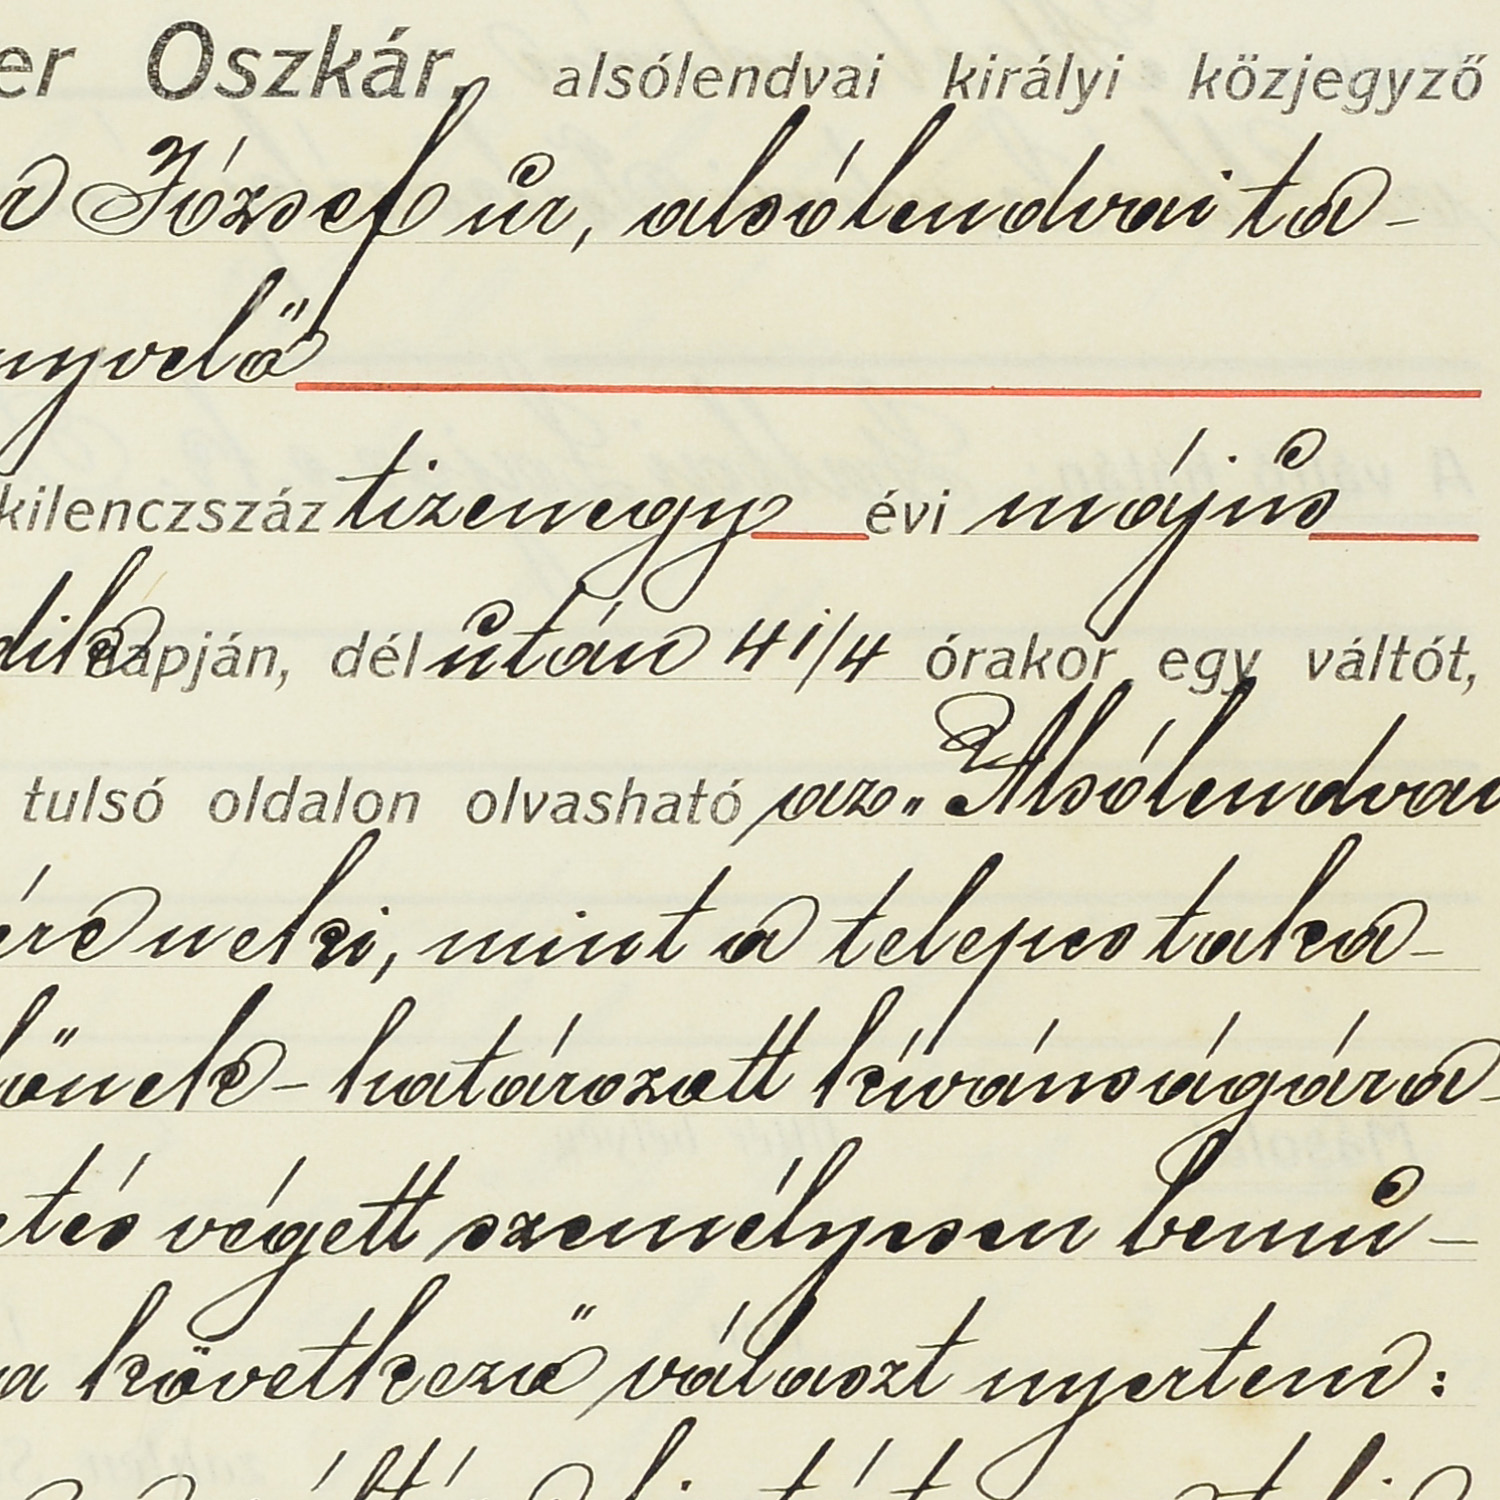 er Oszkár, alsólendvai királyi közjegyző
József úr, alsólendvai ta-
nyvelő
kilenczszáz tizenegy évi május
dik napján, dél után 4 1/4 órakor egy váltót,
tulsó oldalon olvasható az „Alsólendvai
nek, mint a telepes taka-
lőnek - határozott kívánságára -
etés végett személyesen bemu-
a következő választ nyertem: